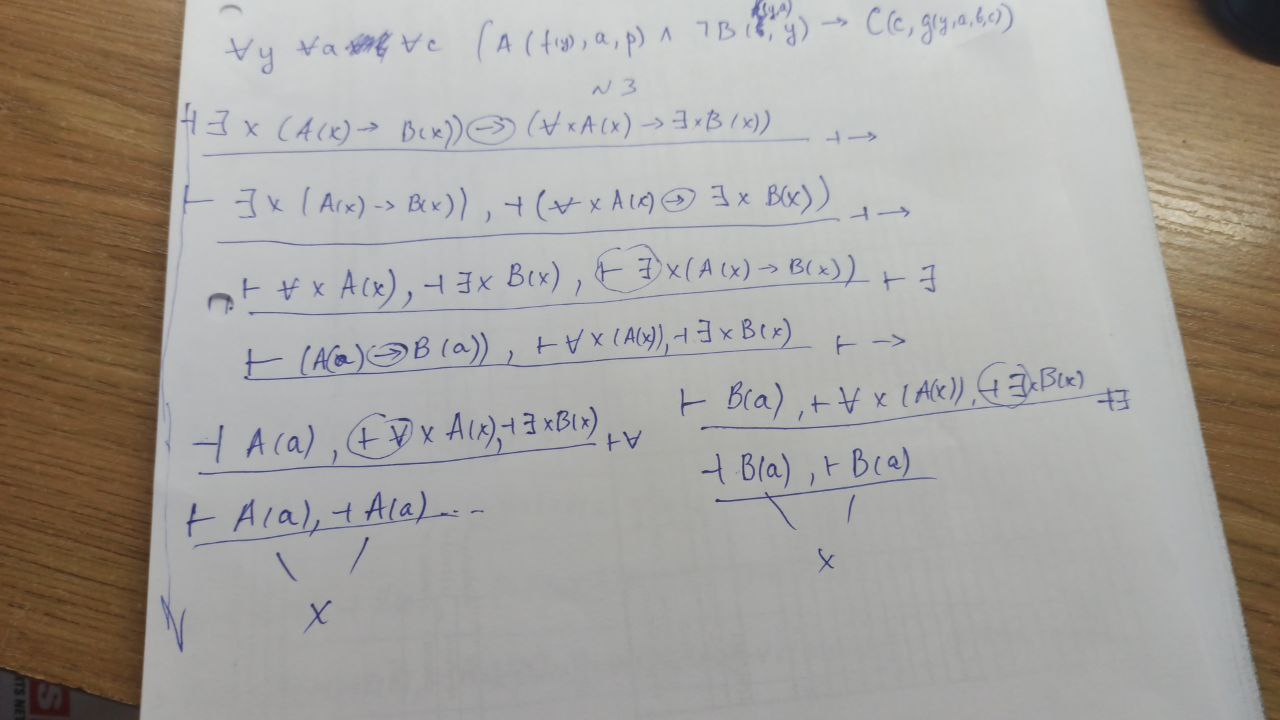 ∀y ∀a ∀c (A(f(y), a, p) ∧ ¬B(f(y,a), y) → C(c, g(y,a,b,c))
N 3
⊣ ∃x (A(x) → B(x)) → (∀xA(x) → ∃xB(x)) ⊣→
⊢ ∃x (A(x) → B(x)), ⊣(∀xA(x) → ∃x B(x)) ⊣→
⊢ ∀x A(x), ⊣∃x B(x), ⊢∃x(A(x) → B(x)) ⊢∃
⊢ (A(a) → B(a)), ⊢∀x(A(x)), ⊣∃xB(x) ⊢→
⊣ A(a), ⊢∀x A(x), ⊣∃xB(x) ⊢∀
⊢ A(a), ⊣A(a)...
X
⊢ B(a), ⊢∀x(A(x)), ⊣∃xB(x) ⊣∃
⊣ B(a), ⊢B(a)
X
TS NET
S